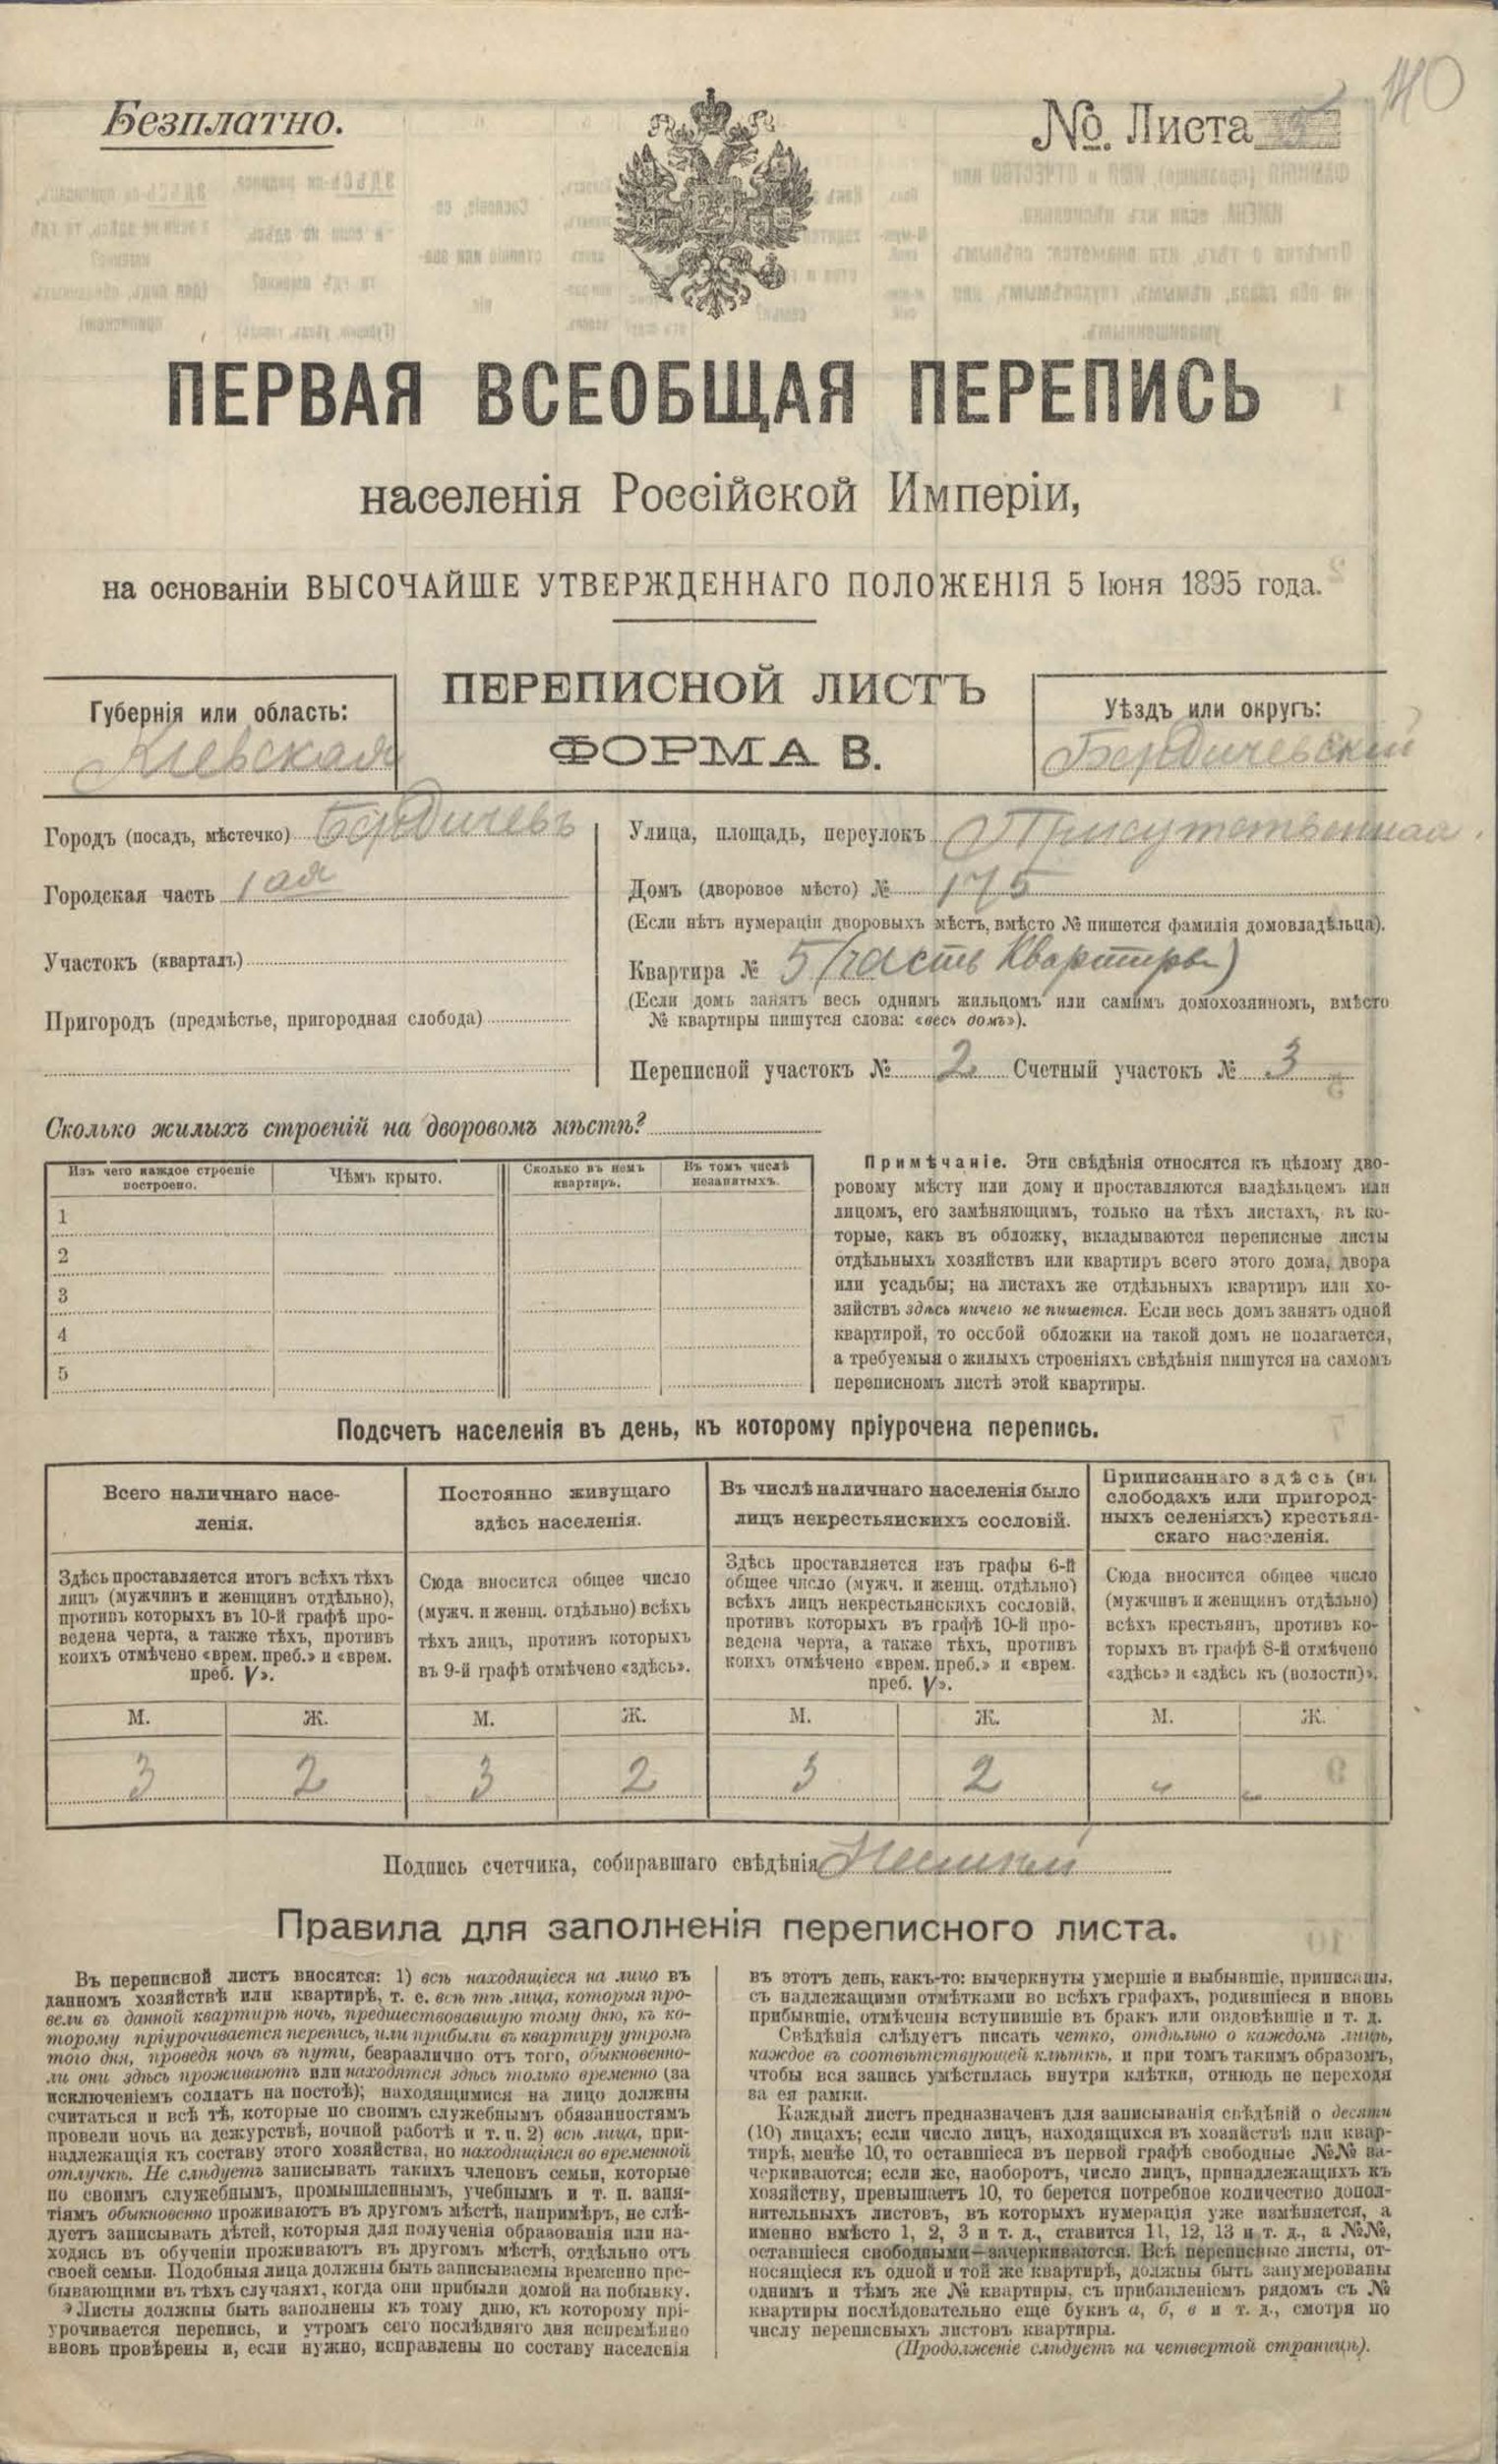 140
Безплатно.
№. Листа
ПЕРВАЯ ВСЕОБЩАЯ ПЕРЕПИСЬ
населенія Россійской Имперіи,
на основаніи ВЫСОЧАЙШЕ УТВЕРЖДЕННАГО ПОЛОЖЕНІЯ 5 Іюня 1895 года.
Губернія или область:
Кіевская
ПЕРЕПИСНОЙ ЛИСТЪ
ФОРМА В.
Уѣздъ или округъ:
Бердичевскій
Городъ (посадъ, мѣстечко) Бердичевъ
Городская часть 1ая
Участокъ (кварталъ)
Пригородъ (предмѣстье, пригородная слобода)
Улица, площадь, переулокъ Присутственная
Домъ (дворовое мѣсто) № 175
(Если нѣтъ нумераціи дворовыхъ мѣстъ, вмѣсто № пишется фамилія домовладѣльца).
Квартира № 5 (часть квартиры)
(Если домъ занятъ весь однимъ жильцомъ или самимъ домохозяиномъ, вмѣсто
№ квартиры пишутся слова: «весь домъ»).
Переписной участокъ № 2 Счетный участокъ № 3
Сколько жилыхъ строеній на дворовомъ мѣстѣ?
Изъ чего каждое строеніе построено.
Чѣмъ крыто.
Сколько въ немъ квартиръ.
Въ томъ числѣ незанятыхъ.
1
2
3
4
5
Примѣчаніе. Эти свѣдѣнія относятся къ цѣлому дво-
ровому мѣсту или дому и проставляются владѣльцемъ или
лицомъ, его замѣняющимъ, только на тѣхъ листахъ, въ ко-
торые, какъ въ обложку, вкладываются переписные листы
отдѣльныхъ хозяйствъ или квартиръ всего этого дома, двора
или усадьбы; на листахъ же отдѣльныхъ квартиръ или хо-
зяйствъ здѣсь ничего не пишется. Если весь домъ занятъ одной
квартирой, то особой обложки на такой домъ не полагается,
а требуемыя о жилыхъ строеніяхъ свѣдѣнія пишутся на самомъ
переписномъ листѣ этой квартиры.
Подсчетъ населенія въ день, къ которому пріурочена перепись.
Всего наличнаго насе-
ленія.
Здѣсь проставляется итогъ всѣхъ тѣхъ
лицъ (мужчинъ и женщинъ отдѣльно),
противъ которыхъ въ 10-й графѣ про-
ведена черта, а также тѣхъ, противъ
коихъ отмѣчено «врем. преб.» и «врем.
преб. V».
Постоянно живущаго
здѣсь населенія.
Сюда вносится общее число
(мужч. и женщ. отдѣльно) всѣхъ
тѣхъ лицъ, противъ которыхъ
въ 9-й графѣ отмѣчено «здѣсь».
Въ числѣ наличнаго населенія было
лицъ некрестьянскихъ сословій.
Здѣсь проставляется изъ графы 6-й
общее число (мужч. и женщ. отдѣльно)
всѣхъ лицъ некрестьянскихъ сословій,
противъ которыхъ въ графѣ 10-й про-
ведена черта, а также тѣхъ, противъ
коихъ отмѣчено «врем. преб.» и «врем.
преб. V».
Приписаннаго здѣсь (въ
слободахъ или пригород-
ныхъ селеніяхъ) крестьян-
скаго населенія.
Сюда вносится общее число
(мужчинъ и женщинъ отдѣльно)
всѣхъ крестьянъ, противъ ко-
торыхъ въ графѣ 8-й отмѣчено
«здѣсь» и «здѣсь къ (волости)».
М. Ж. М. Ж. М. Ж. М. Ж.
3 2 3 2 3 2 - -
Подпись счетчика, собиравшаго свѣдѣнія
Правила для заполненія переписного листа.
Въ переписной листъ вносятся: 1) всѣ находящіеся на лицо въ
данномъ хозяйствѣ или квартирѣ, т. е. всѣ тѣ лица, которыя про-
вели въ данной квартирѣ ночь, предшествовавшую тому дню, къ ко-
торому пріурочивается перепись, или прибыли въ квартиру утромъ
того дня, проведя ночь въ пути, безразлично отъ того, обыкновенно-
ли они здѣсь проживаютъ или находятся здѣсь только временно (за
исключеніемъ солдатъ на постоѣ); находящимися на лицо должны
считаться и всѣ тѣ, которые по своимъ служебнымъ обязанностямъ
провели ночь на дежурствѣ, ночной работѣ и т. п. 2) всѣ лица, при-
надлежащія къ составу этого хозяйства, но находящіяся во временной
отлучкѣ. Не слѣдуетъ записывать такихъ членовъ семьи, которые
по своимъ служебнымъ, промышленнымъ, учебнымъ и т. п. заня-
тіямъ обыкновенно проживаютъ въ другомъ мѣстѣ, напримѣръ, не слѣ-
дуетъ записывать дѣтей, которыя для полученія образованія или на-
ходясь въ обученіи проживаютъ въ другомъ мѣстѣ, отдѣльно отъ
своей семьи. Подобныя лица должны быть записываемы временно пре-
бывающими въ тѣхъ случаяхъ, когда они прибыли домой на побывку.
Листы должны быть заполнены къ тому дню, къ которому прі-
урочивается перепись, и утромъ сего послѣдняго дня непремѣнно
вновь провѣрены и, если нужно, исправлены по составу населенія
въ этотъ день, какъ-то: вычеркнуты умершіе и выбывшіе, приписаны,
съ надлежащими отмѣтками во всѣхъ графахъ, родившіеся и вновь
прибывшіе, отмѣчены вступившіе въ бракъ или овдовѣвшіе и т. д.
Свѣдѣнія слѣдуетъ писать четко, отдѣльно о каждомъ лицѣ,
каждое въ соотвѣтствующей клѣткѣ, и при томъ такимъ образомъ,
чтобы вся запись умѣстилась внутри клѣтки, отнюдь не переходя
за ея рамки.
Каждый листъ предназначенъ для записыванія свѣдѣній о десяти
(10) лицахъ; если число лицъ, находящихся въ хозяйствѣ или квар-
тирѣ, менѣе 10, то оставшіеся въ первой графѣ свободные №№ за-
черкиваются; если же, наоборотъ, число лицъ, принадлежащихъ къ
хозяйству, превышаетъ 10, то берется потребное количество допол-
нительныхъ листовъ, въ которыхъ нумерація уже измѣняется, а
именно вмѣсто 1, 2, 3 и т. д., ставится 11, 12, 13 и т. д., а №№,
оставшіеся свободными—зачеркиваются. Всѣ переписные листы, от-
носящіеся къ одной и той же квартирѣ, должны быть занумерованы
однимъ и тѣмъ же № квартиры, съ прибавленіемъ рядомъ съ №
квартиры послѣдовательно еще буквъ а, б, в и т. д., смотря по
числу переписныхъ листовъ квартиры.
(Продолженіе слѣдуетъ на четвертой страницѣ).